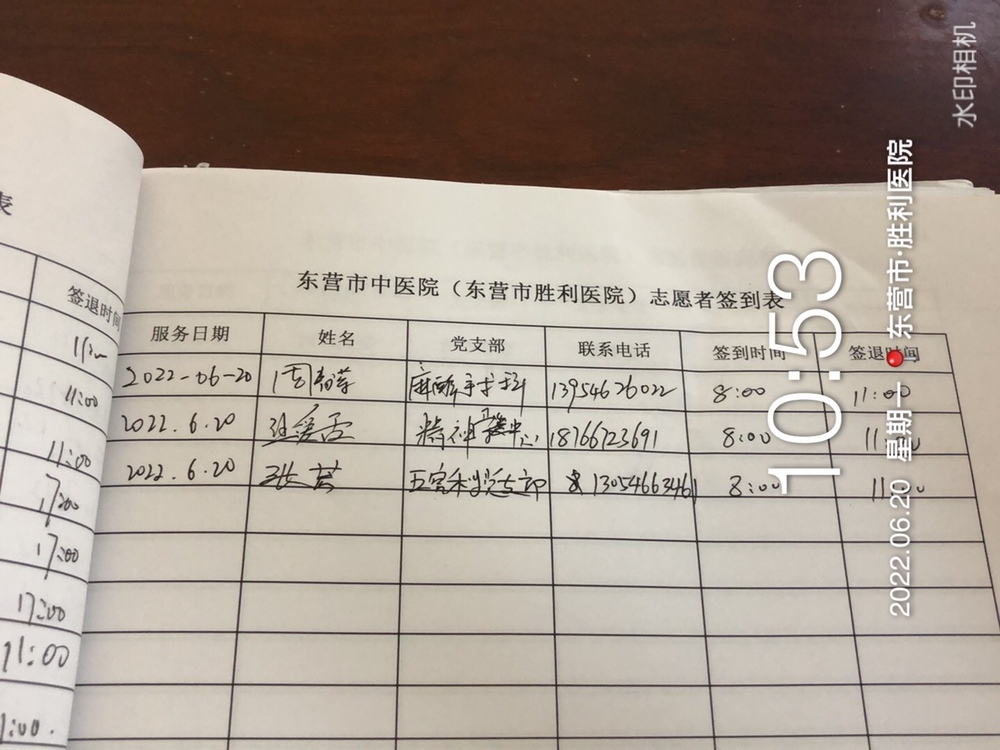 表
签退时间
11:00
11:00
17:00
17:00
17:00
11:00
1:00.
东营市中医院（东营市胜利医院）志愿者签到表
服务日期 姓名 党支部 联系电话 签到时间 签退时间
2022-06-20 麻醉手术科 13954626022 8:00 11:00
2022.6.20 精神 18766723691 8:00 11
2022.6.20 张 五官科党支部 13054663461 8:00 11:00
10:53
2022.06.20 星期一 东营市·胜利医院
水印相机